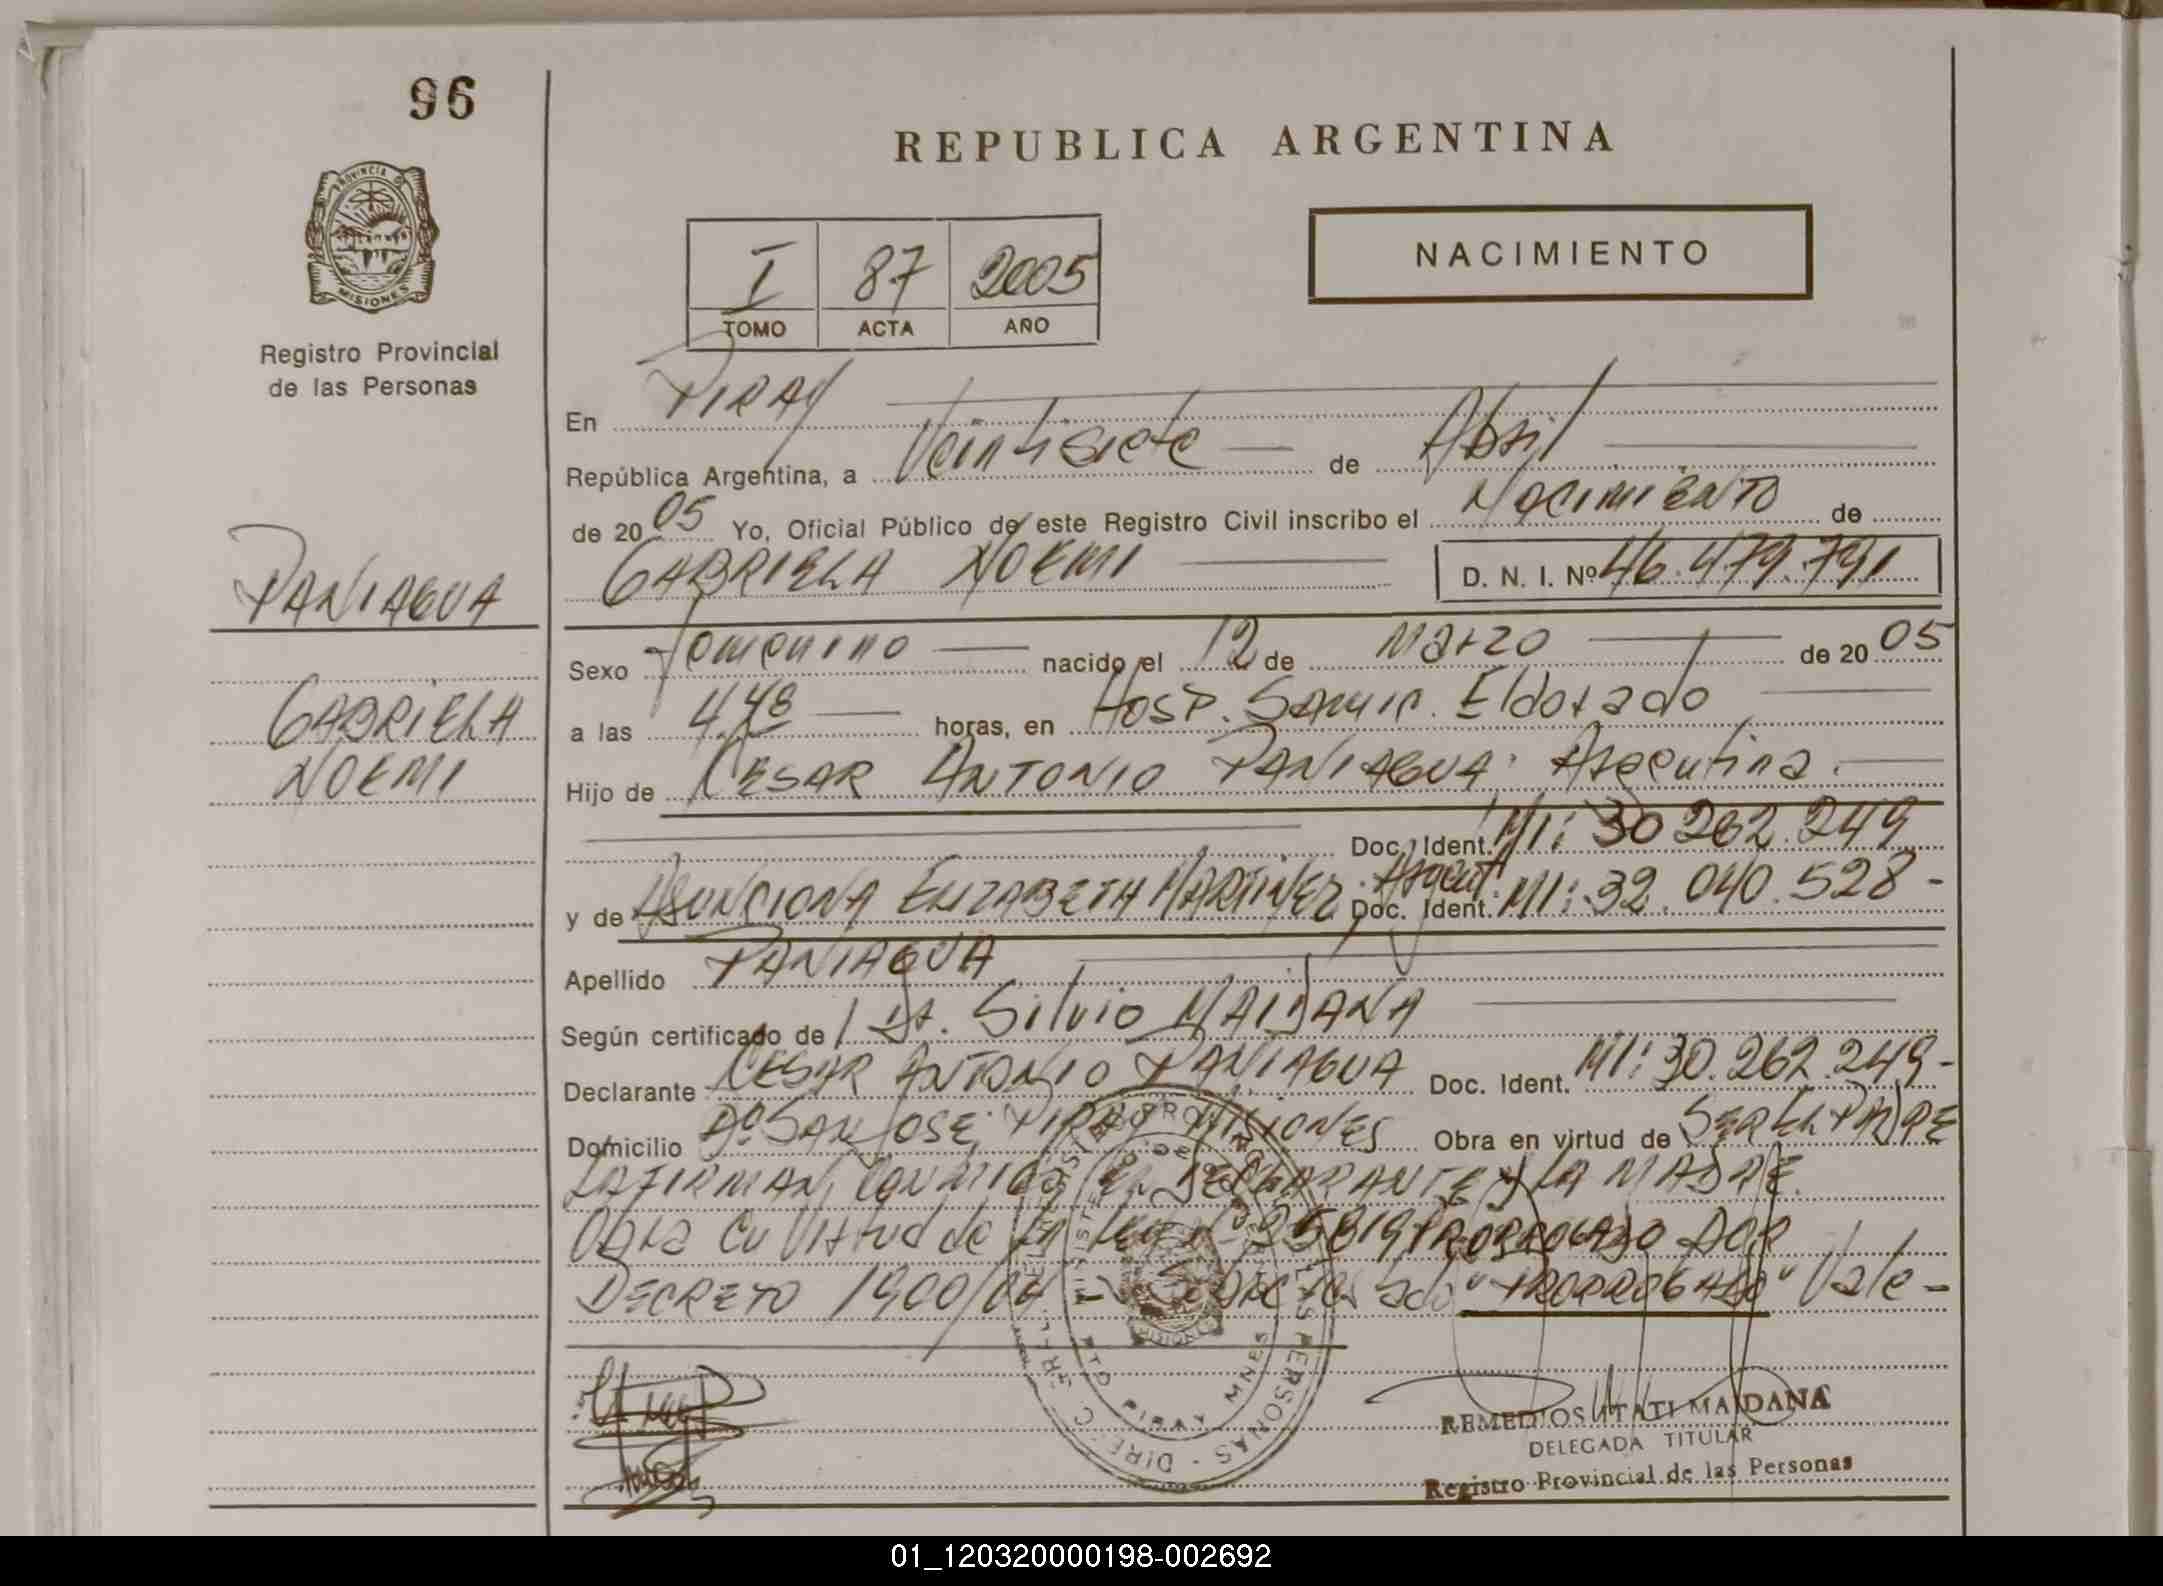 96
REPUBLICA ARGENTINA
PROVINCIA DE
MISIONES
Registro Provincial
de las Personas
I 87 2005
TOMO ACTA AÑO
NACIMIENTO
En PIRAY
República Argentina, a Veintisiete de Abril
de 2005 Yo, Oficial Público de este Registro Civil inscribo el Nacimiento de
GABRIELA NOEMI D. N. I. Nº 46.479.791
PANIAGUA
GABRIELA
NOEMI
Sexo Femenino nacido el 12 de Marzo de 2005
a las 4,48 horas, en Hosp. Samic. Eldorado
Hijo de CESAR ANTONIO PANIAGUA. Argentina.
Doc. Ident. MI: 30.262.249
y de ASUNCIONA ELIZABETH MARTINEZ. Argent. Doc. Ident. MI: 32.040.528-
Apellido PANIAGUA
Según certificado de Dr. Silvio MAIDANA
Declarante CESAR ANTONIO PANIAGUA Doc. Ident. MI: 30.262.249-
Domicilio Aº SAN JOSE, PIRAY MISIONES Obra en virtud de SER EL PADRE
FIRMAN CONMIGO EL DECLARANTE Y LA MADRE.
Obra en Virtud de la Ley 25819 PRORROGADO POR
DECRETO 1900/04 Sobre "PRORROGADO" Vale-
PTO PIRAY MNES
REMEDIOS ITATI MAIDANA
DELEGADA TITULAR
Registro Provincial de las Personas
01_120320000198-002692